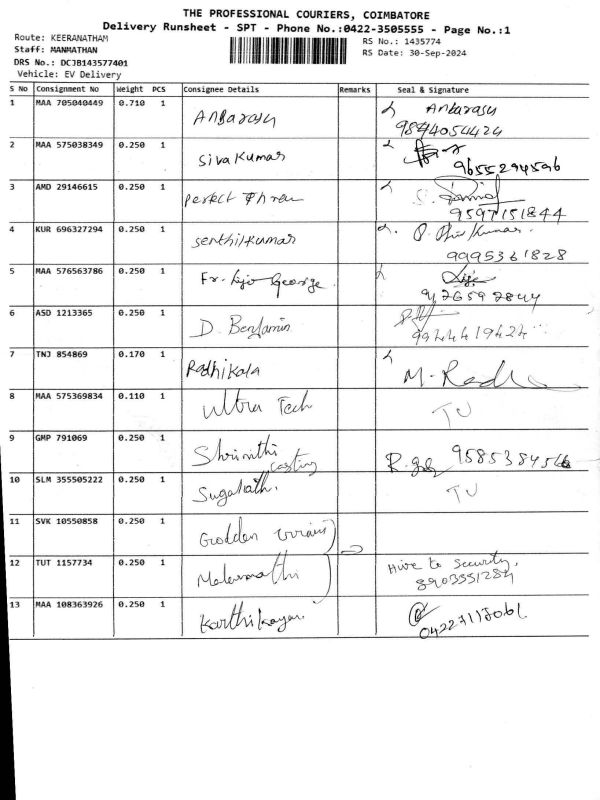 THE PROFESSIONAL COURIERS, COIMBATORE
Delivery Runsheet - SPT - Phone No.:0422-3505555 - Page No.:1
Route: KEERANATHAM
Staff: MANMATHAN
DRS No.: DCJB143577401
Vehicle: EV Delivery
RS No.: 1435774
RS Date: 30-Sep-2024
S No Consignment No Weight PCS Consignee Details Remarks Seal & Signature
1 MAA 705040449 0.710 1 Anbarasu Anbarasu
9844054424
2 MAA 575038349 0.250 1 Sivakumar
9655294596
3 AMD 29146615 0.250 1 perfect
9597151844
4 KUR 696327294 0.250 1 senthilkumar
9995361828
5 MAA 576563786 0.250 1 Fr. Lijo George
6 ASD 1213365 0.250 1 D. Benjamin
7 TNJ 854869 0.170 1 Radhikala M. Radh
8 MAA 575369834 0.110 1 Ultra Tech TU
9 GMP 791069 0.250 1 Shrinithi
casting
10 SLM 355505222 0.250 1 Suganth. TU
11 SVK 10550858 0.250 1
12 TUT 1157734 0.250 1 Hive to Security,
8903551284
13 MAA 108363926 0.250 1 Karthikayan.